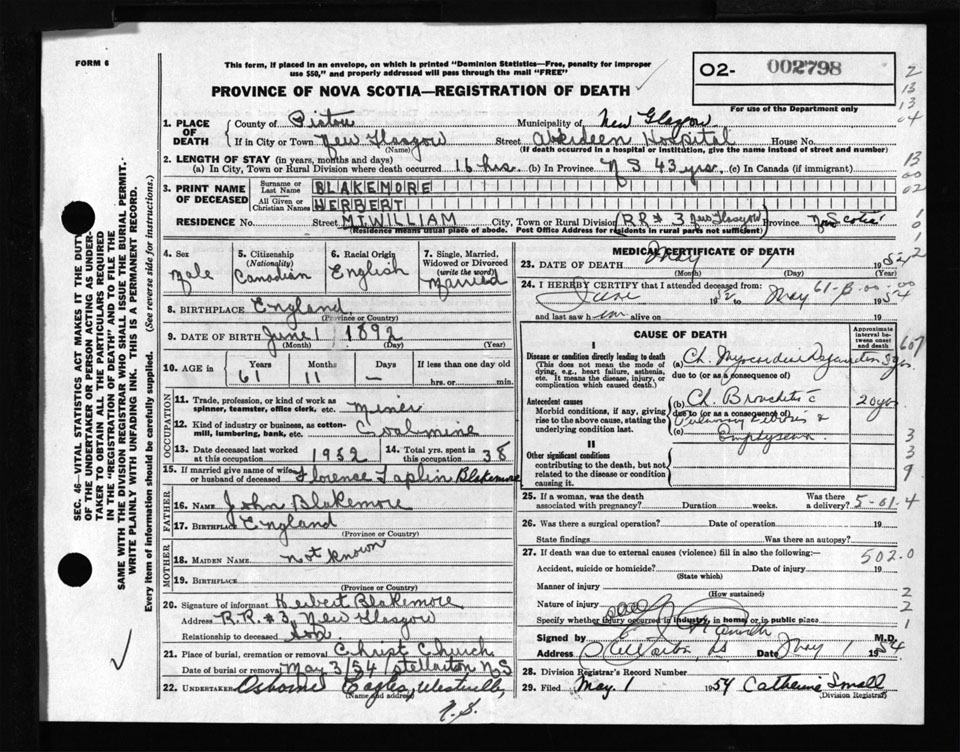 FORM 6
This form, if placed in an envelope, on which is printed "Dominion Statistics—Free, penalty for improper
use $50," and properly addressed will pass through the mail "FREE"
PROVINCE OF NOVA SCOTIA—REGISTRATION OF DEATH
02- 002798
For use of the Department only
2
13
13
04
13
00
02
1
0
1
2
SEC. 46—VITAL STATISTICS ACT MAKES IT THE DUTY
OF THE UNDERTAKER OR PERSON ACTING AS UNDER-
TAKER TO OBTAIN ALL THE PARTICULARS REQUIRED
IN THE "REGISTRATION OF DEATH" AND TO FILE THE
SAME WITH THE DIVISION REGISTRAR WHO SHALL ISSUE THE BURIAL PERMIT.
WRITE PLAINLY WITH UNFADING INK. THIS IS A PERMANENT RECORD.
Every item of information should be carefully supplied. (See reverse side for instructions.)
1. PLACE OF DEATH
County of Pictou Municipality of New Glasgow
If in City or Town New Glasgow Street Aberdeen Hospital House No.
(Name) (If death occurred in a hospital or institution, give the name instead of street and number)
2. LENGTH OF STAY (in years, months and days)
(a) In City, Town or Rural Division where death occurred 16 hrs. (b) In Province N S 43 yrs. (c) In Canada (if immigrant)
3. PRINT NAME OF DECEASED
Surname or Last Name BLAKEMORE
All Given or Christian Names HERBERT
RESIDENCE No. Street MT. WILLIAM City, Town or Rural Division (R.R # 3 New Glasgow) Province N. Scotia
(Residence means usual place of abode. Post Office Address for residents in rural parts not sufficient)
4. Sex Male
5. Citizenship (Nationality) Canadian
6. Racial Origin English
7. Single, Married, Widowed or Divorced (write the word) Married
8. BIRTHPLACE England
(Province or Country)
9. DATE OF BIRTH June 1 1892
(Month) (Day) (Year)
10. AGE in Years 61 Months 11 Days — If less than one day old hrs. or min.
OCCUPATION
11. Trade, profession, or kind of work as
spinner, teamster, office clerk, etc. Miner
12. Kind of industry or business, as cotton-
mill, lumbering, bank, etc. Coalmine
13. Date deceased last worked at this occupation 1952
14. Total yrs. spent in this occupation 38
15. If married give name of wife or husband of deceased Florence Taplin Blakemore
FATHER
16. Name John Blakemore
17. Birthplace England
(Province or Country)
MOTHER
18. Maiden Name not known
19. Birthplace
(Province or Country)
20. Signature of informant Herbert Blakemore
Address R.R. #3, New Glasgow
Relationship to deceased son
21. Place of burial, cremation or removal Christ Church
Date of burial or removal May 3/54 / Stellarton N S
22. Undertaker Osborne Eagles, Westville,
(Name and address)
N. S.
MEDICAL CERTIFICATE OF DEATH
23. DATE OF DEATH May 1 19
(Month) (Day) (Year)
61-B-00-00
24. I HEREBY CERTIFY that I attended deceased from:
June 1952 to May 1954
and last saw him alive on 19
CAUSE OF DEATH
Approximate interval between onset and death
607
I
Disease or condition directly leading to death
(This does not mean the mode of
dying, e.g., heart failure, asthenia,
etc. It means the disease, injury, or
complication which caused death.)
(a) Ch. Myocardial Degeneration 5 yrs
due to (or as a consequence of)
Antecedent causes
Morbid conditions, if any, giving
rise to the above cause, stating the
underlying condition last.
(b) Ch. Bronchitis c 20 yrs
due to (or as a consequence of)
Pulmonary Fibrosis &
(c) Emphysema
II
Other significant conditions
contributing to the death, but not
related to the disease or condition
causing it.
3
3
9
25. If a woman, was the death associated with pregnancy? Duration weeks. Was there a delivery? 5-01-4
26. Was there a surgical operation? Date of operation 19
State findings Was there an autopsy?
27. If death was due to external causes (violence) fill in also the following:— 502.0
Accident, suicide or homicide? Date of injury 19
(State which)
Manner of injury 2
(How sustained)
Nature of injury 2
Specify whether injury occurred in industry, in home, or in public place 1
Signed by M.D.
Address Stellarton, NS Date May 1 1954
28. Division Registrar's Record Number
29. Filed May. 1 1954 Catherine Small
(Division Registrar)